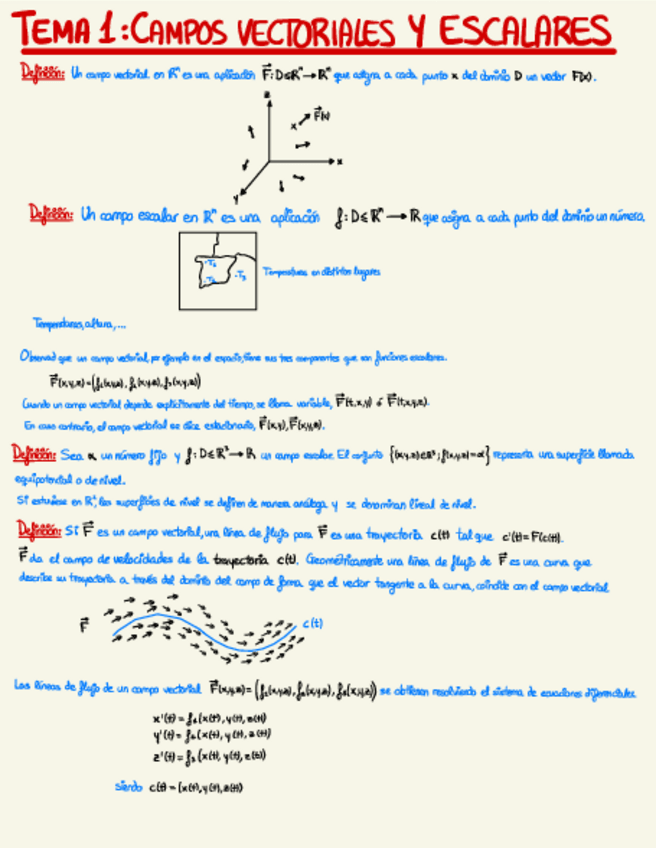 TEMA 1: CAMPOS VECTORIALES Y ESCALARES
Definición: Un campo vectorial en ℝⁿ es una aplicación F⃗: D⊆ℝⁿ→ℝⁿ que asigna a cada punto x del dominio D un vector F(x).
z
x F⃗(x)
x
y
Definición: Un campo escalar en ℝⁿ es una aplicación f: D⊆ℝⁿ → ℝ que asigna a cada punto del dominio un número.
·T₁
·T₂ ·T₃ Temperaturas en distintos lugares
Temperaturas, altura, ...
Observad que un campo vectorial, por ejemplo en el espacio, tiene sus tres componentes que son funciones escalares.
F⃗(x,y,z)=(f₁(x,y,z), f₂(x,y,z), f₃(x,y,z))
Cuando un campo vectorial depende explícitamente del tiempo, se llama variable, F⃗(t,x,y) ó F⃗(t,x,y,z).
En caso contrario, el campo vectorial se dice estacionario, F⃗(x,y), F⃗(x,y,z).
Definición: Sea α un número fijo y f: D⊆ℝ³→ℝ un campo escalar. El conjunto {(x,y,z)∈ℝ³; f(x,y,z)=α} representa una superficie llamada
equipotencial o de nivel.
Si estuviese en ℝ², las superficies de nivel se definen de manera análoga y se denominan líneal de nivel.
Definición: Si F⃗ es un campo vectorial, una línea de flujo para F⃗ es una trayectoria c(t) tal que c'(t)=F(c(t)).
F⃗ da el campo de velocidades de la trayectoria c(t). Geométricamente una línea de flujo de F⃗ es una curva que
describe su trayectoria a través del dominio del campo de forma que el vector tangente a la curva, coincide con el campo vectorial
F⃗ c(t)
Las líneas de flujo de un campo vectorial F⃗(x,y,z)=(f₁(x,y,z), f₂(x,y,z), f₃(x,y,z)) se obtienen resolviendo el sistema de ecuaciones diferenciales
x'(t)=f₁(x(t), y(t), z(t))
y'(t)=f₂(x(t), y(t), z(t))
z'(t)=f₃(x(t), y(t), z(t))
siendo c(t)=(x(t), y(t), z(t))